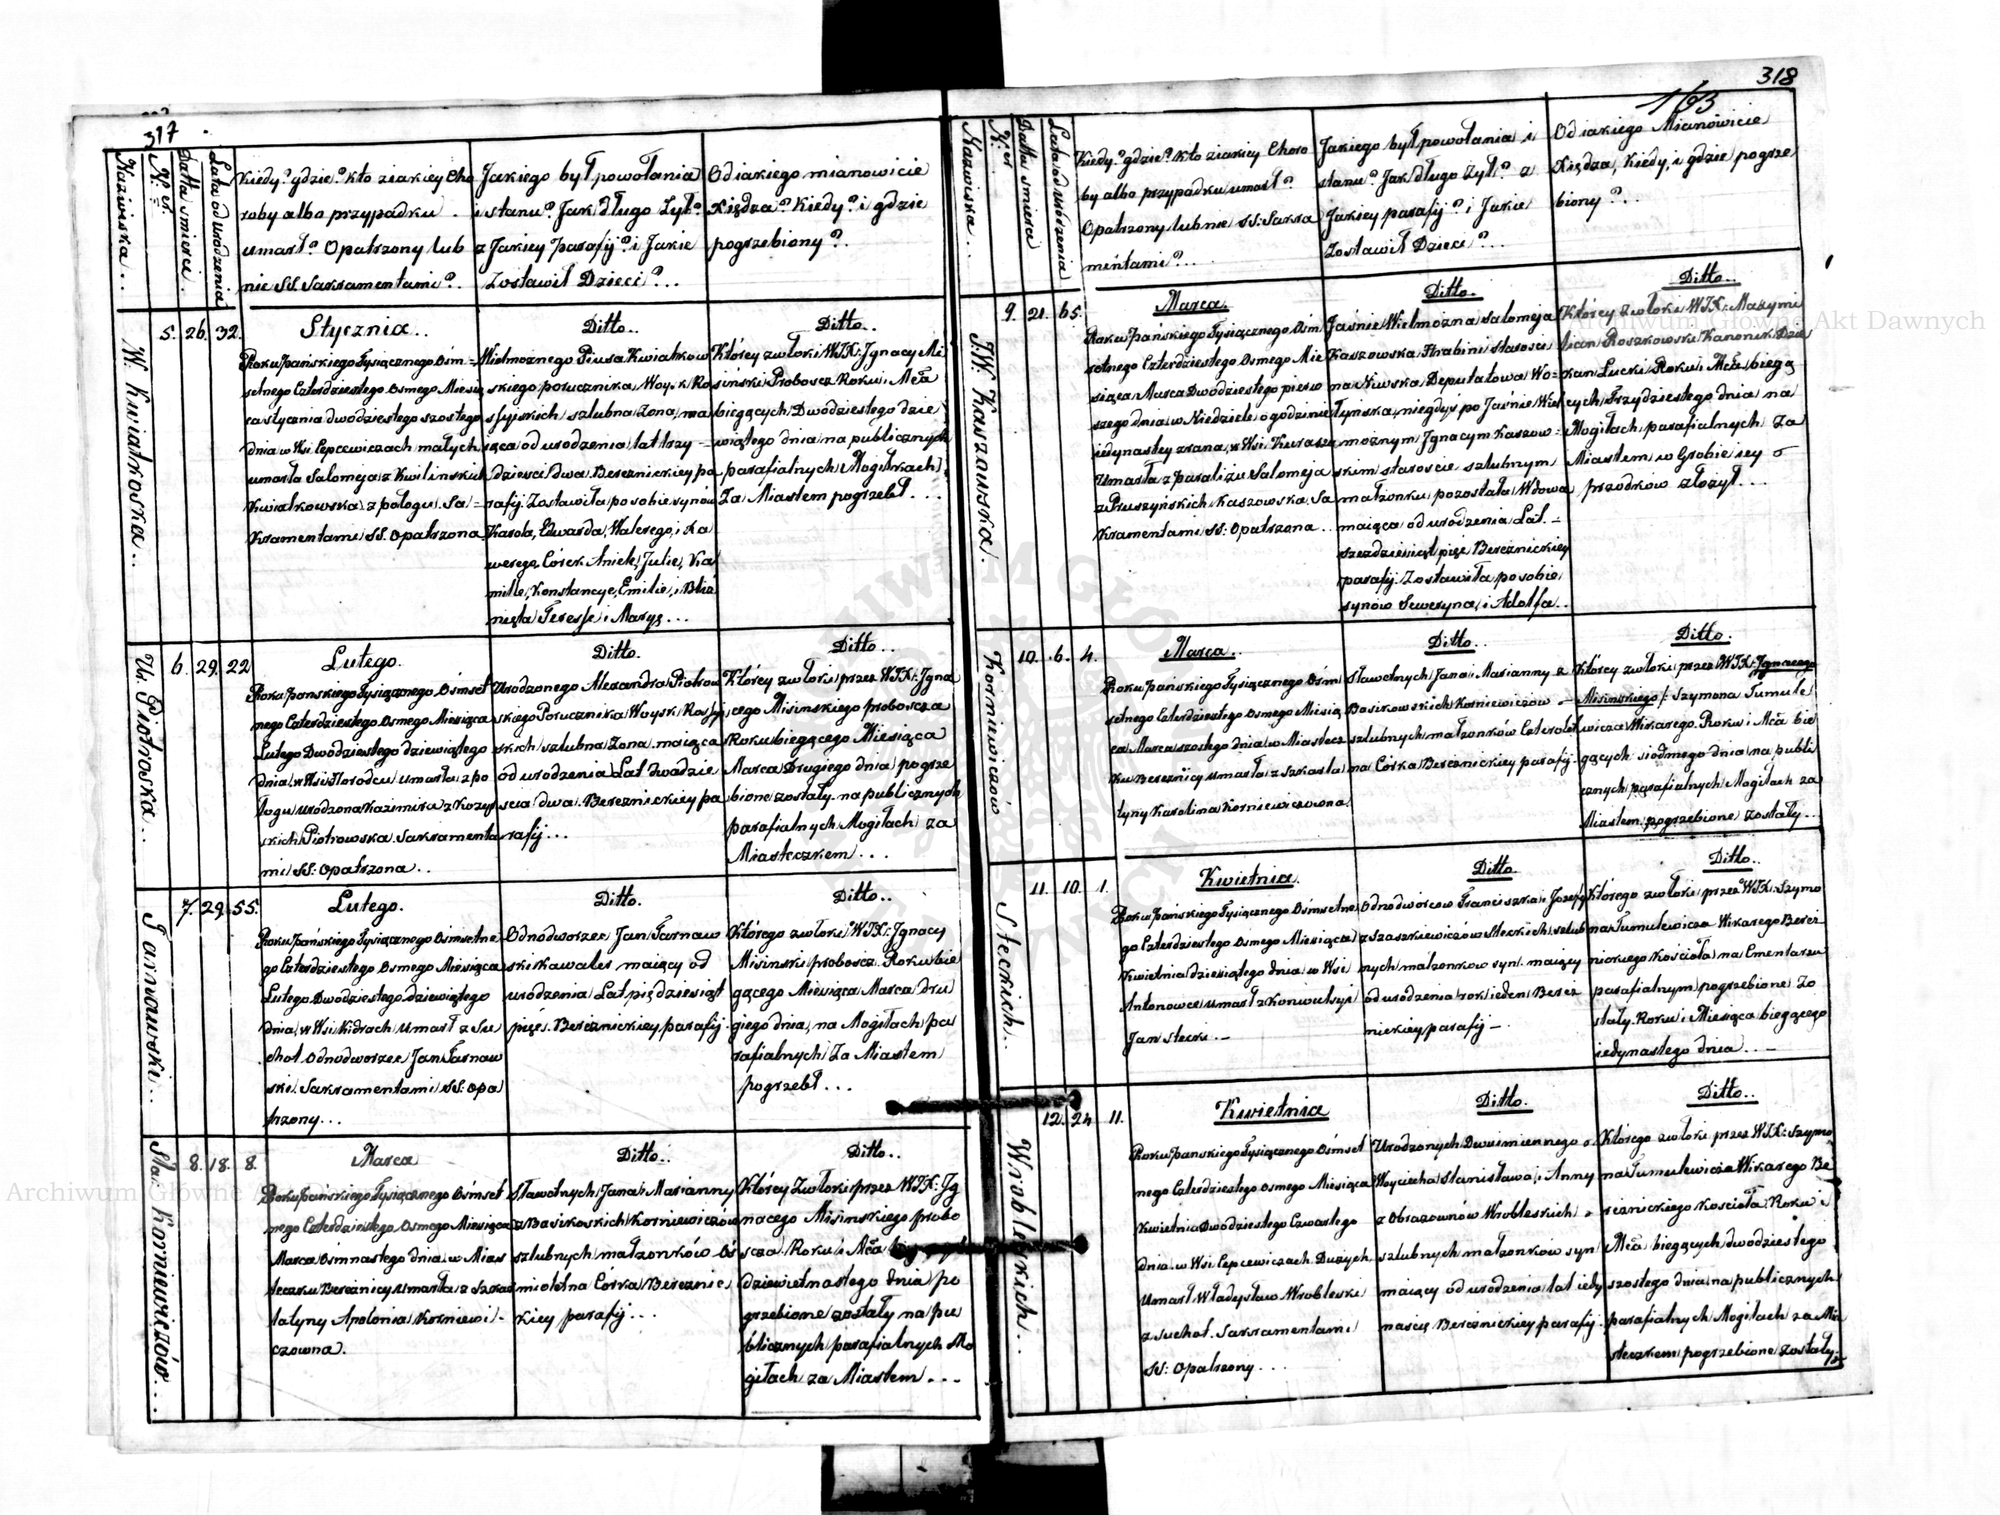 317
Nazwiska..
N: er.
Datta śmierci.
Lata od urodzenia
Kiedy? gdzie? kto ziakiey Cho
roby albo przypadku.
umarł? Opatrzony lub
nie SS. Sakramentami?.
Jakiego był powołania
i stanu? Jak długo Żył?
z Jakiey Parafij? i Jakie
Zostawił Dzieci?...
Od iakiego mianowicie
Xiędza? Kiedy? i gdzie
pogrzebiony?.
W. Kwiatkoska..
5. 26. 32.
Stycznia..
Roku Pańskiego Tysiącznego Ośm=
setnego Czterdziestego Osmego Miesią
ca stycznia dwódziestego szostego
dnia w Wsi Cepcewiczach małych
umarła Salomeja z Kwilinskich
Kwiatkowska z połogu. Sa=
kramentami SS. Opatrzona
Ditto..
Wielmoznego Piusa Kwiatkow
skiego porucznika Woysk Ro
ssyiskich szlubna Żona, ma
iąca od urodzenia lat trzy=
dzieści dwa Bereznickiey pa
rafij. Zostawiła po sobie synów
Karola, Edwarda, Walerego, i Xa
werego, Córek Aniele, Julie, Ka
mille, Konstancye, Emilie, i Bliź
nięta Teresse i Maryę...
Ditto..
Którey zwłoki WJX: Jgnacy Mi
siński Proboscz Roku i Mca
biegących Dwódziestego dzie
wiątego dnia na publicznych
parafialnych Mogiłkach
Za Miastem pogrzebł...
Ur. Piotroska...
6. 29. 22
Lutego.
Roku Panskiego Tysiącznego Ośmset
nego Czterdziestego Osmego Miesiąca
Lutego Dwódziestego dziewiątego
dnia w Wsi Horodcu umarła z po
łogu urodzona Kazimira z Kozyr
skich Piotrowska Sakramenta
mi SS: Opatrzona..
Ditto.
Urodzonego Alexandra Piotrow
skiego Porucznika Woysk Rossyj
skich szlubna Żona maiąca
od urodzenia Lat dwadzie
scia dwa. Bereznickiey pa
rafij...
Ditto...
Którey zwłoki przez WJX: Jgna
cego Misinskiego probosczа
Roku biegącego Miesiąca
Marca Drugiego dnia pogrze
bione zostały na publicznych
parafialnych Mogiłach za
Miasteczkiem...
Tarnawski...
7. 29. 55.
Lutego.
Roku Pańskiego Tysiącznego Osmsetne
go Czterdziestego Osmego Miesiąca
Lutego Dwódziestego dziewiątego
dnia w Wsi Kidrach umarł z Su
chot Odnodworzec Jan Tarnaw
ski. Sakramentami SS: opa
trzony...
Ditto.
Odnodworzec Jan Tarnaw
ski kawaler maiący od
urodzenia Lat pięćdziesiąt
pięć. Bereznickiey parafij.
Ditto...
Którego zwłoki WJX: Jgnacy
Misinski proboscz. Roku bie
gącego Miesiąca Marca dru
giego dnia na Mogiłach pa
rafialnych Za Miastem
pogrzebł...
Sła: Korniewiczów...
8. 18. 8.
Marca
Roku Pańskiego Tysiącznego Osmset
nego Czterdziestego Osmego Miesiąca
Marca Osmnastego dnia w Mias
teczku Bereznicy umarła z Szkar
latyny Apolonia Korniewi-
czowna.
Ditto..
Sławetnych Jana i Marianny
z Basikoskich Korniewiczów
szlubnych małzonków Oś
mioletna Córka Berezni
kiey parafij...
Ditto..
Którey Zwłoki przez WJX: Jg
nacego Misinskiego probo
scza. Roku i Mca
dziewietnastego dnia po
grzebione zostały na pu
blicznych parafialnych Mo
giłach za Miastem...
318
163
Nazwiska..
N. er
Datta śmierci
Lata od urodzenia
Kiedy? gdzie? kto z iakiey Choro
by albo przypadku umarł?
Opatrzony lub nie SS: Sakra
mentami?..
Jakiego był powołania i
stanu? Jak długo Żył? z
Jakiey parafij? i Jakie
Zostawił Dzieci?...
Od iakiego Mianowicie
Xiędza, Kiedy, i gdzie pogrze
biony?..
J.W. Kaszowska.
9. 21. 65.
Marca.
Roku Pańskiego Tysiącznego Osm
setnego Czterdziestego Osmego Mie
siąca Marca Dwódziestego pierw
szego dnia w Niedziele o godzinie
iedynastey zrana, w Wsi Kurasz
Umarła z Paraliżu Salomeja
z Pruszyńskich Kaszowska. Sa
kramentami SS: Opatrzona..
Ditto.
Jasnie Wielmozna Salomeja
Kaszowska Hrabini Starosci
na Deputatowa Wo=
łynska, niegdyś po Jaśnie Wiel
moznym Jgnacym Kaszow=
skim staroscie szlubnym
małzonku pozostała Wdowa
maiąca od urodzenia Lat.-
szezdziesiąt pięć Bereznickiey
parafij. Zostawiła po sobie
synów Seweryna, i Adolfa..
Ditto..
Którey zwłoki WJX: Maxymi
lian Roszkowski Kanonik Dzie
kan Lucki Roku i Mca bieg=
cych Trzydziestego dnia na
Mogiłach parafialnych Za
Miastem w Grobie iey
przodków złożył...
Korniewiczów
10. 6. 4.
Marca..
Roku Pańskiego Tysiącznego Ośm
setnego Czterdziestego Osmego Miesią
ca Marca szostego dnia w Miastecz
ku Bereznicy umarła z Szkarla
tyny Karolina Korniewiczowna.
Ditto..
Sławetnych Jana i Marianny z
Basikowskich Korniewiczow -
szlubnych małzonków Czterolet
na Córka Bereznickiey parafij.
Ditto.
Którey zwłoki przez WJX: Jgnacego
Misinskiego /: Szymona Tumule
wicza Wikarego. Roku i Mca bie
gących siodmego dnia na publi
cznych parafialnych Mogiłach za
Miastem pogrzebione zostały...
Steckich..
11. 10. 1.
Kwietnia.
Roku Pańskiego Tysiącznego Osmsetne
go Czterdziestego Osmego Miesiąca
Kwietnia dziesiątego dnia w Wsi
Antonowce umarł z Konwulsyi
Jan Stecki.-
Ditto.
Odnodworcow Franciszka i Jozefy
z Szaszkiewiczow Steckich szlub
nych małzonkow syn. maiący
od urodzenia rok ieden Berez
nickiey parafij-
Ditto..
Którego zwłoki przez WJX: Szymo
na Tumulewicza Wikarego Berez
nickiego Kościoła na Cmentarzu
parafialnym pogrzebione Zo
stały. Roku i Miesiąca biegącego
iedynastego dnia..-
Wroblewskich..
12. 24 11.
Kwietnia
Roku Panskiego Tysiącznego Ośmset
nego Czterdziestego Osmego Miesiąca
Kwietnia Dwódziestego Czwartego
dnia w Wsi Cepcewiczach Dużych
umarł Władysław Wrobleski
z Suchot. Sakramentami
SS: Opatrzony...
Ditto.
Urodzonych Dwuimiennego
Woyciecha Stanisława, i Anny
z Wrobleskich
szlubnych małzonków syn
maiący od urodzenia lat iedy
nascię Bereznickiey parafij.
Ditto..
Którego zwłoki przez WJX: Szymo
na Tumulewicza Wikarego Be
reznickiego Kościoła Roku i
Mca biegących dwodziestego
szostego dnia na publicznych
parafialnych Mogiłach za Mia
steczkiem pogrzebione zostały.
Archiwum Główne Akt Dawnych